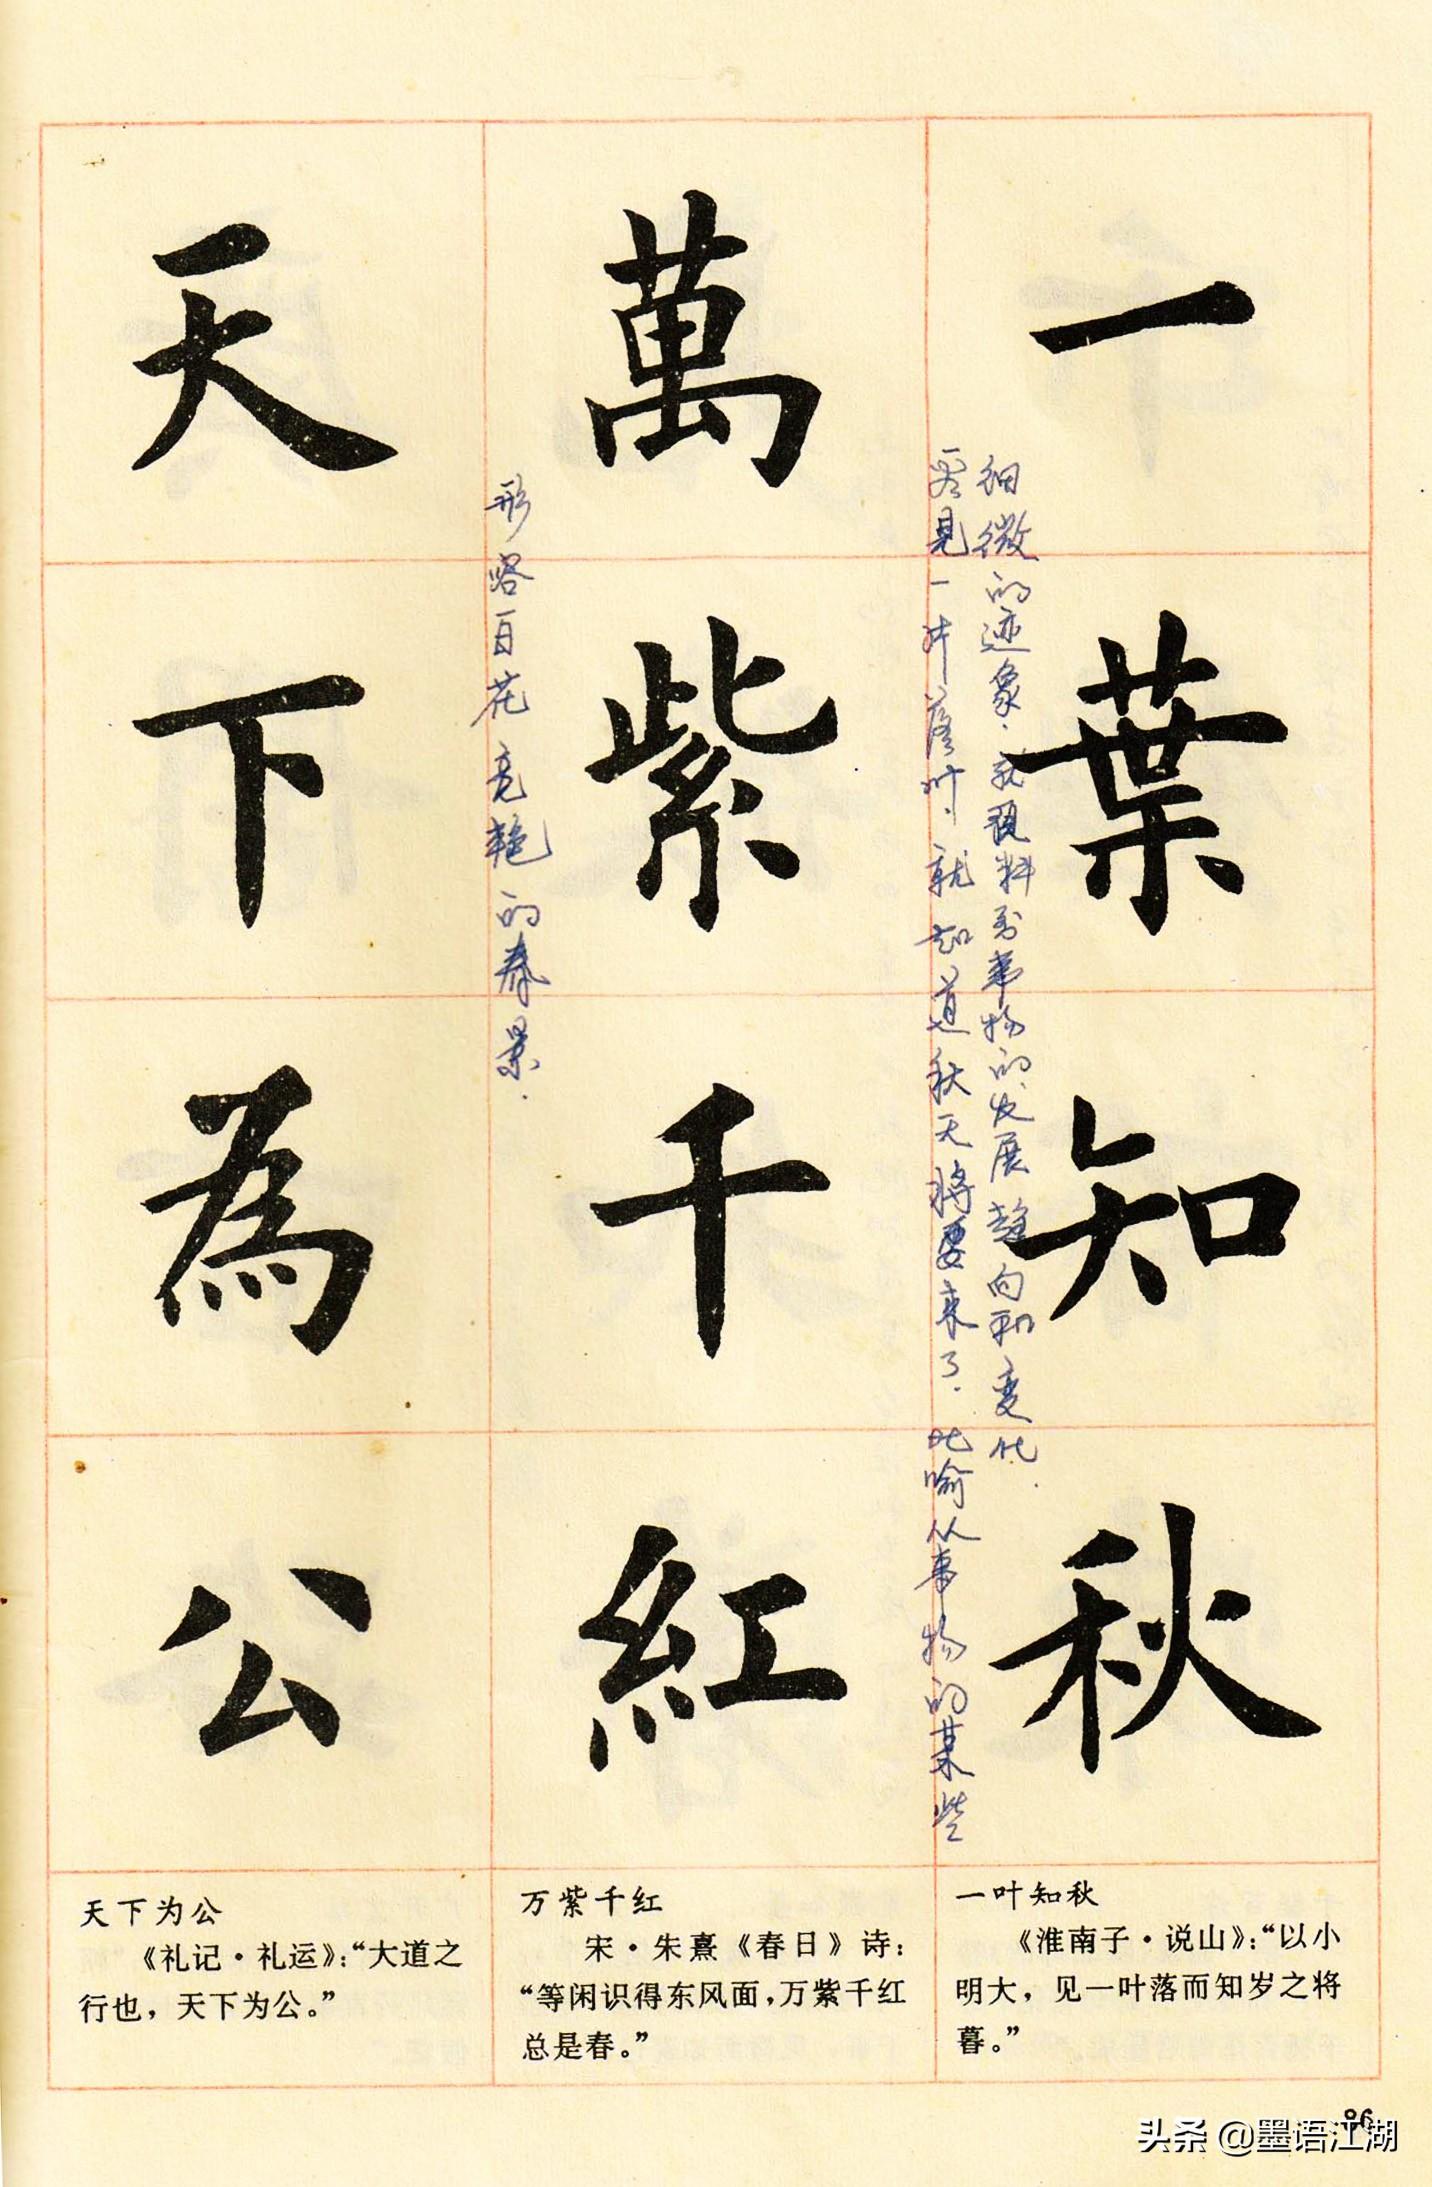 一葉知秋
看见一片落叶．就知道秋天将要来了．比喻从事物的某些
细微的迹象．就预料到事物的发展趋向和变化．
萬紫千紅
形容百花竞艳的春景．
天下為公
一叶知秋
《淮南子·说山》：“以小
明大，见一叶落而知岁之将
暮。”
万紫千红
宋·朱熹《春日》诗：
“等闲识得东风面，万紫千红
总是春。”
天下为公
《礼记·礼运》：“大道之
行也，天下为公。”
头条 @墨语江湖